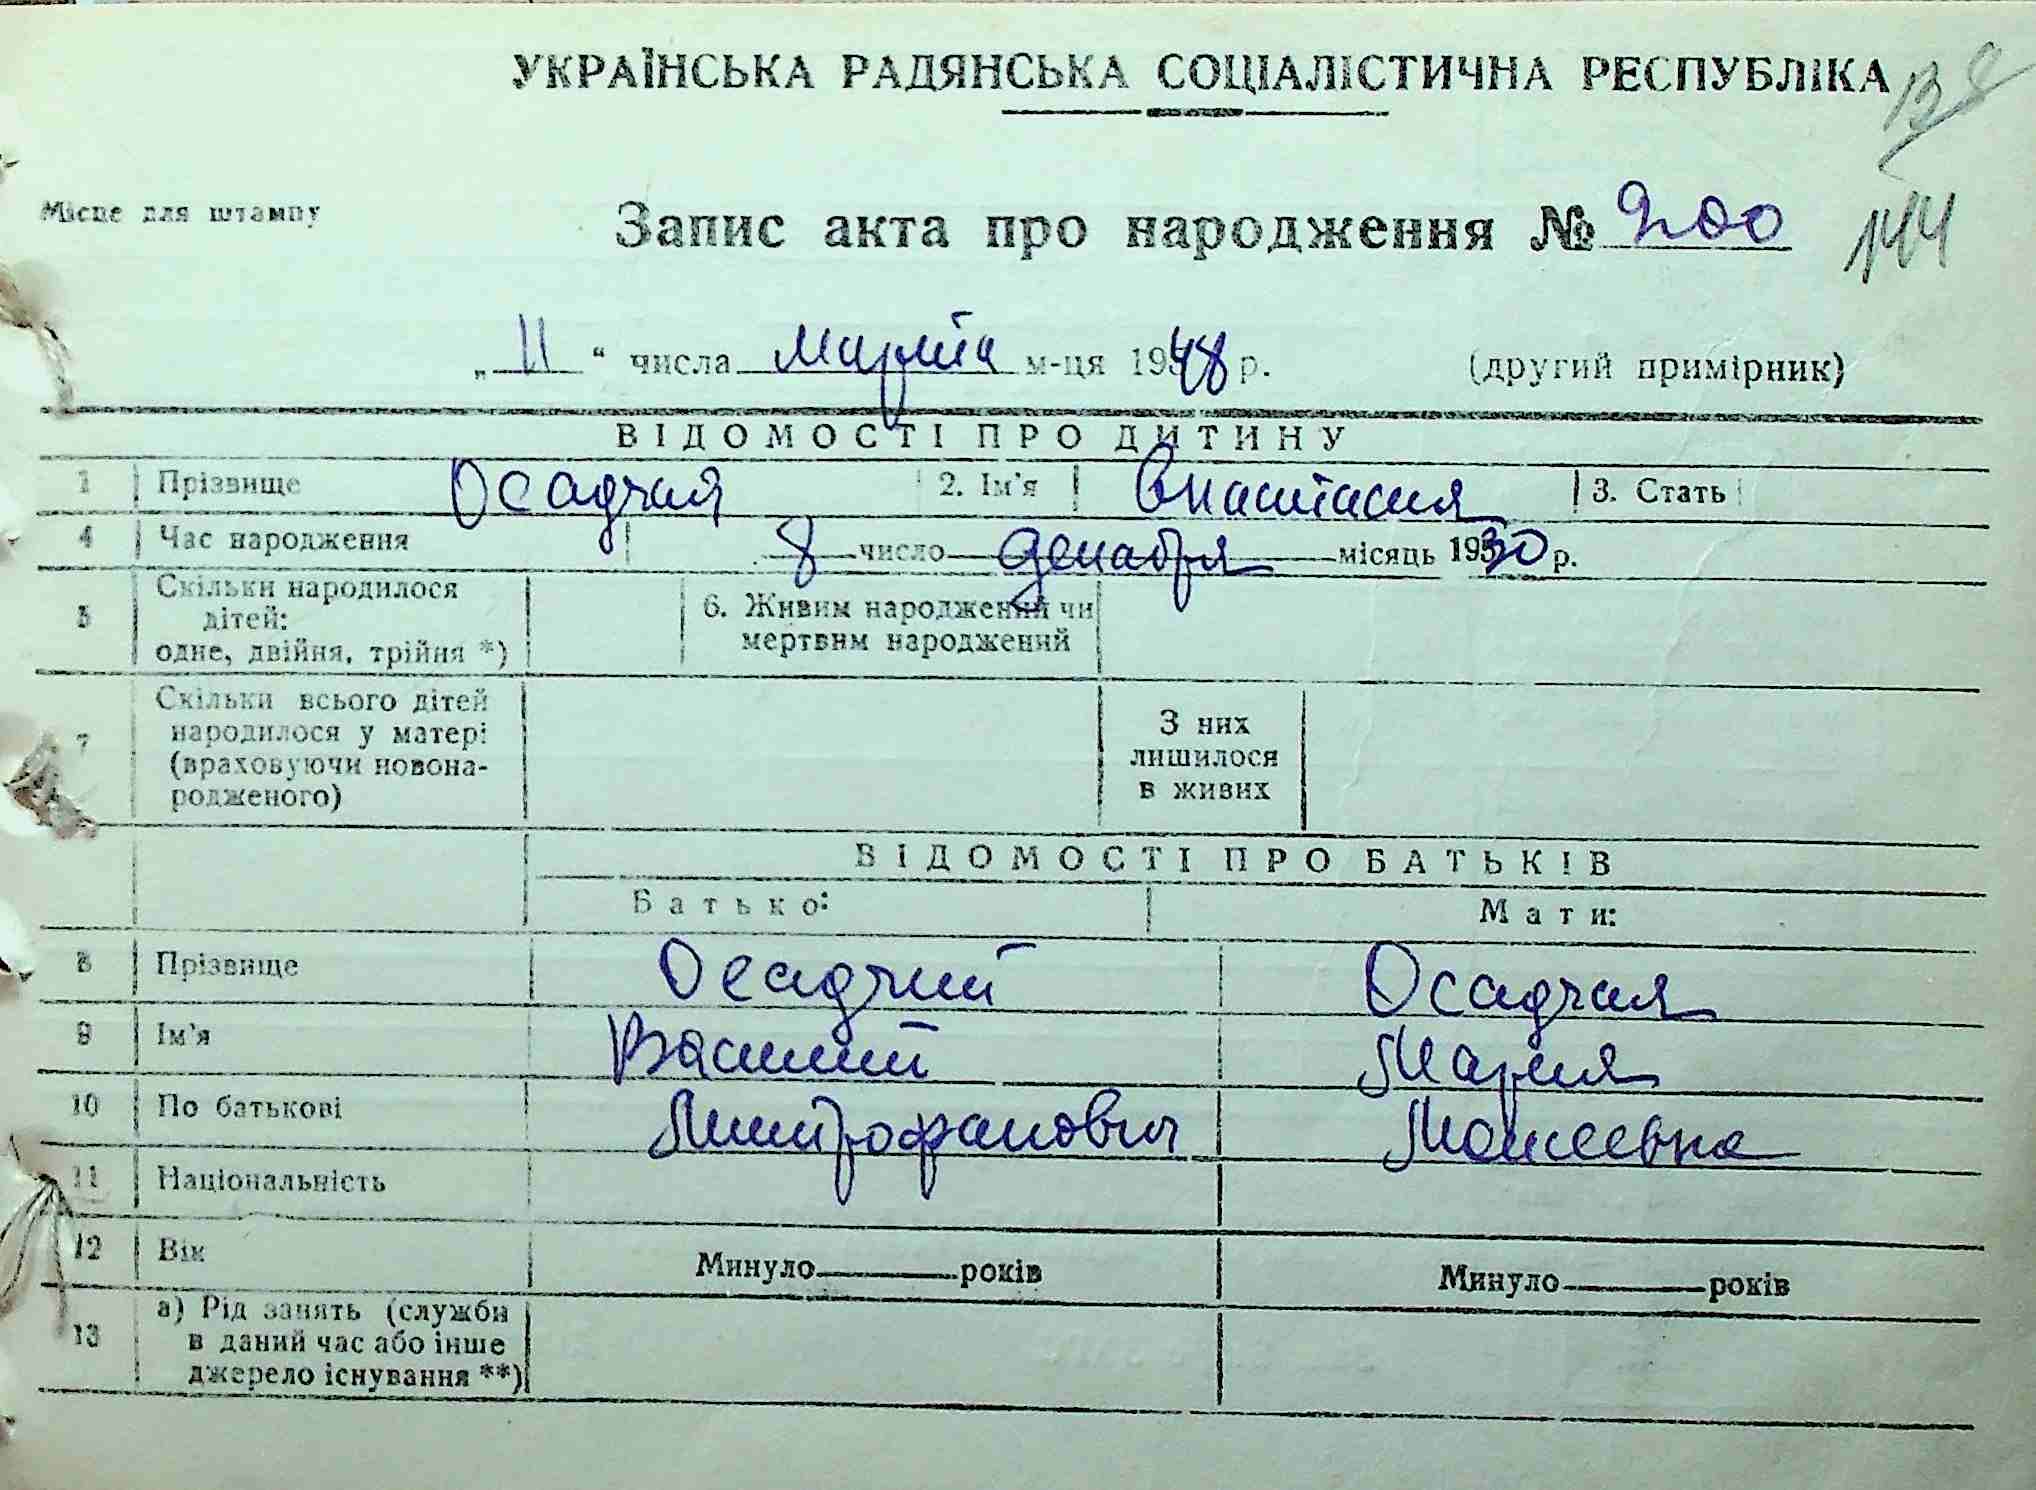 УКРАЇНСЬКА РАДЯНСЬКА СОЦІАЛІСТИЧНА РЕСПУБЛІКА
138
Місце для штампу
Запис акта про народження № 200
144
„ 11 “ числа Марта м-ця 1948 р. (другий примірник)
ВІДОМОСТІ ПРО ДИТИНУ
1 Прізвище Осадчая 2. Ім'я Анастасия 3. Стать
4 Час народження 8 число декабря місяць 1930 р.
5 Скільки народилося
дітей:
одне, двійня, трійня *)
6. Живим народжений чи
мертвим народжений
7 Скільки всього дітей
народилося у матері
(враховуючи новона-
родженого)
З них
лишилося
в живих
ВІДОМОСТІ ПРО БАТЬКІВ
Батько: Мати:
8 Прізвище Осадчий Осадчая
9 Ім'я Василий Мария
10 По батькові Митрофанович Моисеевна
11 Національність
12 Вік Минуло років Минуло років
13 а) Рід занять (служби
в даний час або інше
джерело існування **)